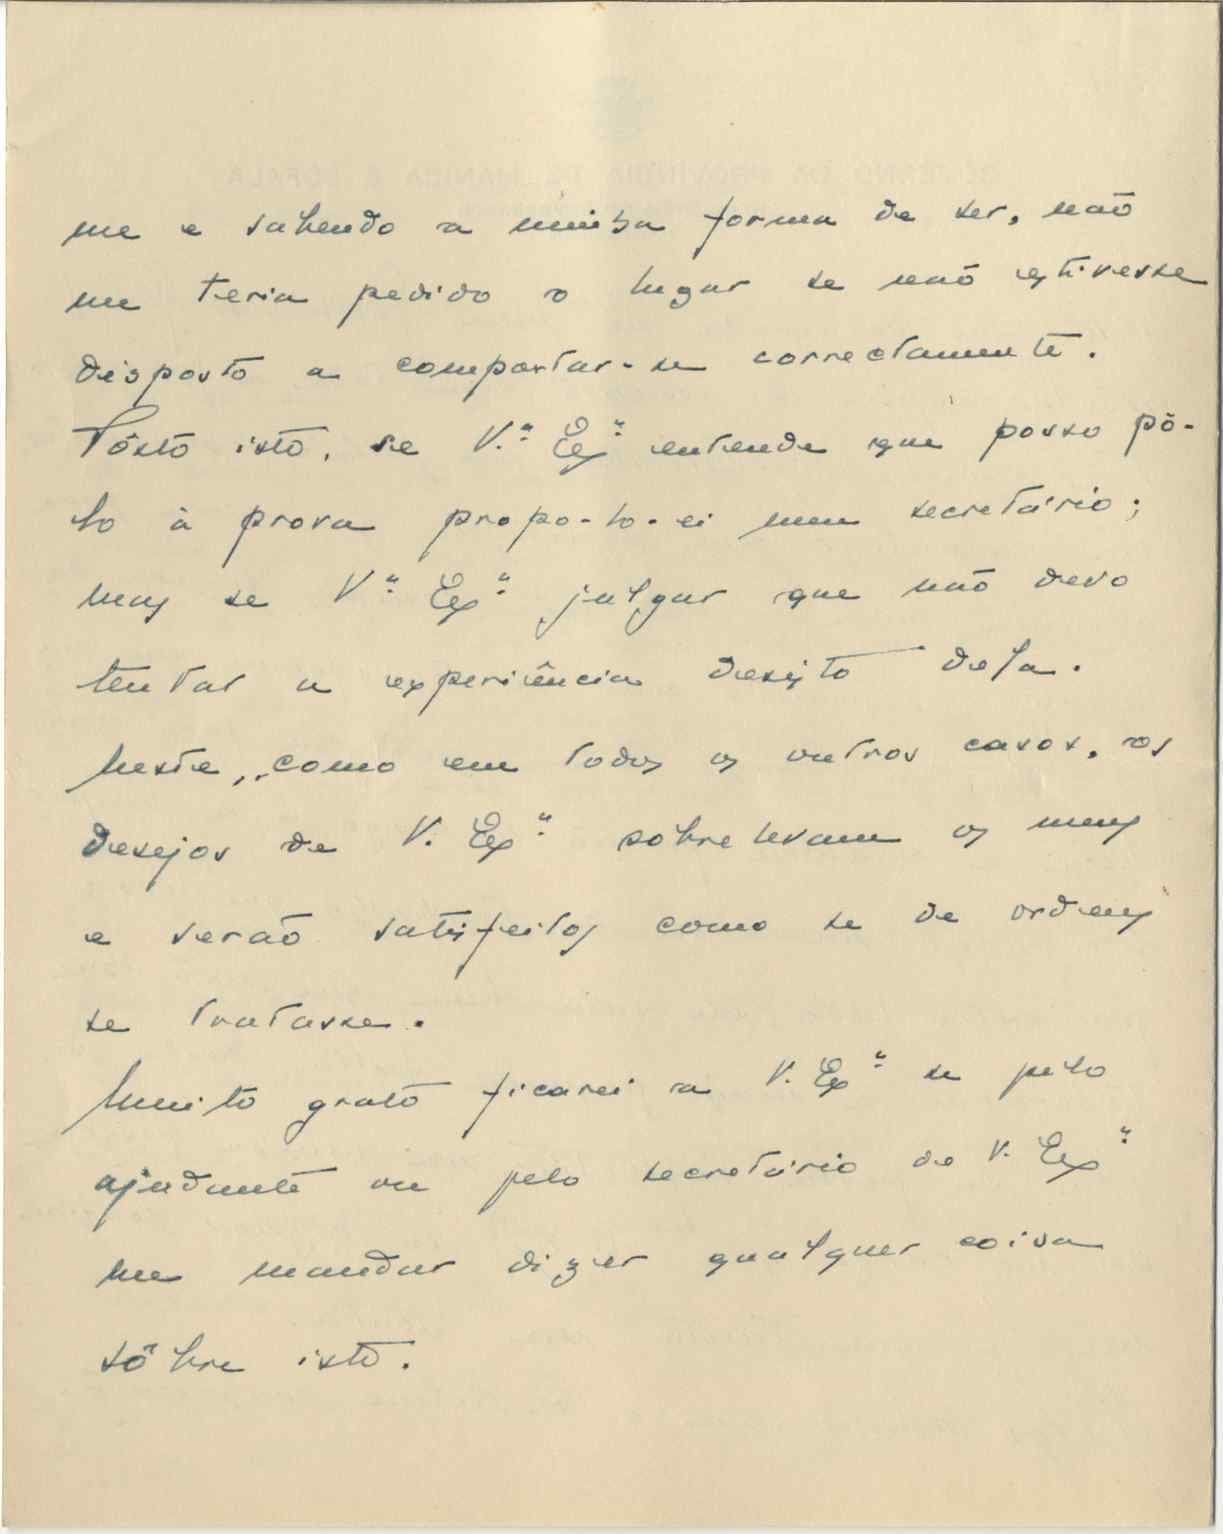 me e sabendo a minha forma de ser, não
me teria pedido o lugar se não estivesse
disposto a comportar-se correctamente.
Pôsto isto, se V.ª Exª entende que posso pô-
lo à prova propo-lo-ei meu secretário;
mas se Vª Exª julgar que não devo
tentar a experiência desisto dela.
Neste, como em todos os outros casos, os
desejos de V. Exª sôbrelevam os meus
e serão satisfeitos como se de ordens
se tratasse.
Muito grato ficarei a V. Exª se pelo
ajudante ou pelo secretário de V. Exª
me mandar dizer qualquer coisa
sôbre isto.
GOVERNO DA PROVÍNCIA DE MANICA E SOFALA